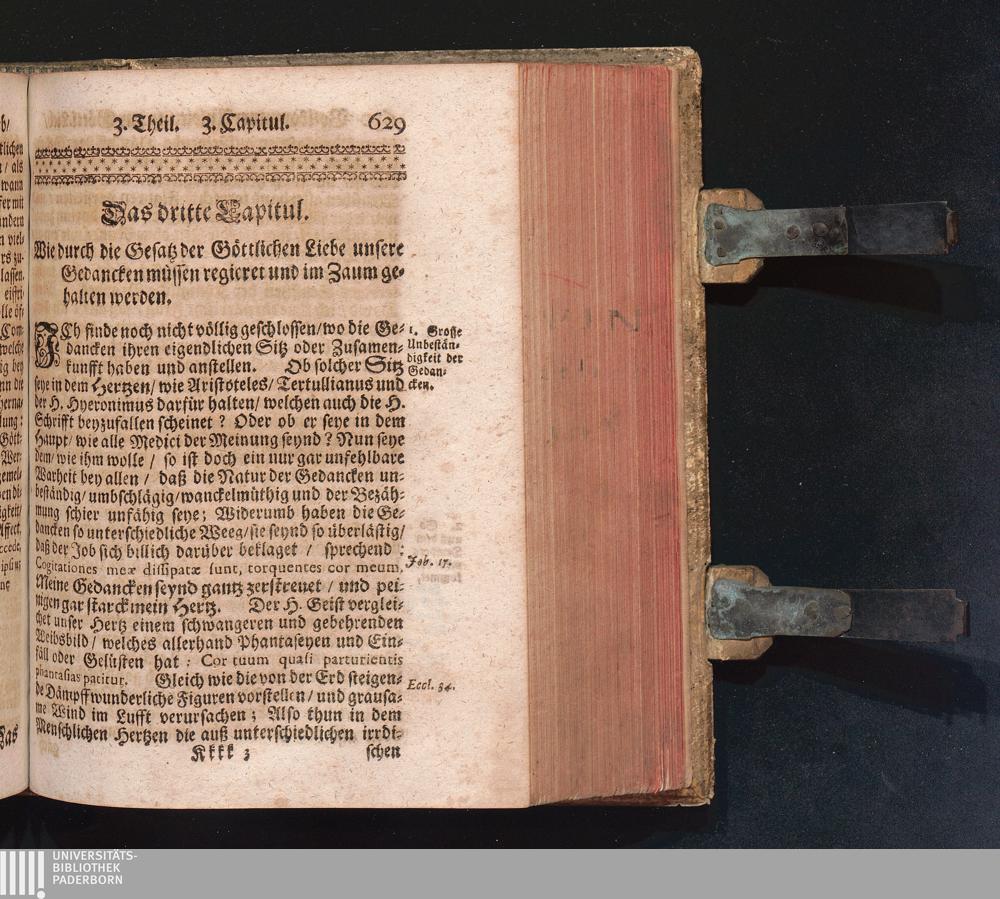 3. Theil. 3. Capitul. 629
Das dritte Capitul.
Wie durch die Gesatz der Göttlichen Liebe unsere
Gedancken müssen regieret und im Zaum ge-
halten werden.
ICh finde noch nicht völlig geschlossen/ wo die Ge-
dancken ihren eigendlichen Sitz oder Zusamen-
kunfft haben und anstellen. Ob solcher Sitz
seye in dem Hertzen/ wie Aristoteles/ Tertullianus und
der H. Hyeronimus darfür halten/ welchen auch die H.
Schrifft beyzufallen scheinet? Oder ob er seye in dem
Haupt/ wie alle Medici der Meinung seynd? Nun seye
dem/ wie ihm wolle/ so ist doch ein nur gar unfehlbare
Warheit bey allen/ daß die Natur der Gedancken un-
beständig/ umbschlägig/ wanckelmüthig und der Bezäh-
mung schier unfähig seye; Widerumb haben die Ge-
dancken so unterschiedliche Weeg/ sie seynd so überlästig/
daß der Job sich billich darüber beklaget/ sprechend:
Cogitationes meæ dissipatæ sunt, torquentes cor meum,
Meine Gedancken seynd gantz zerstreuet/ und pei-
nigen gar starck mein Hertz. Der H. Geist verglei-
chet unser Hertz einem schwangeren und gebehrenden
Weibsbild/ welches allerhand Phantaseyen und Ein-
fäll oder Gelüsten hat: Cor tuum quasi parturientis
phantasias patitur. Gleich wie die von der Erd steigen-
de Dämpff wunderliche Figuren vorstellen/ und grausa-
me Wind im Lufft verursachen; Also thun in dem
Menschlichen Hertzen die auß unterschiedlichen irrdi-
Kkkk 3 schen
1. Grosse
Unbestän-
digkeit der
Gedan-
cken.
Job. 17.
Eccl. 34.
UNIVERSITÄTS-
BIBLIOTHEK
PADERBORN